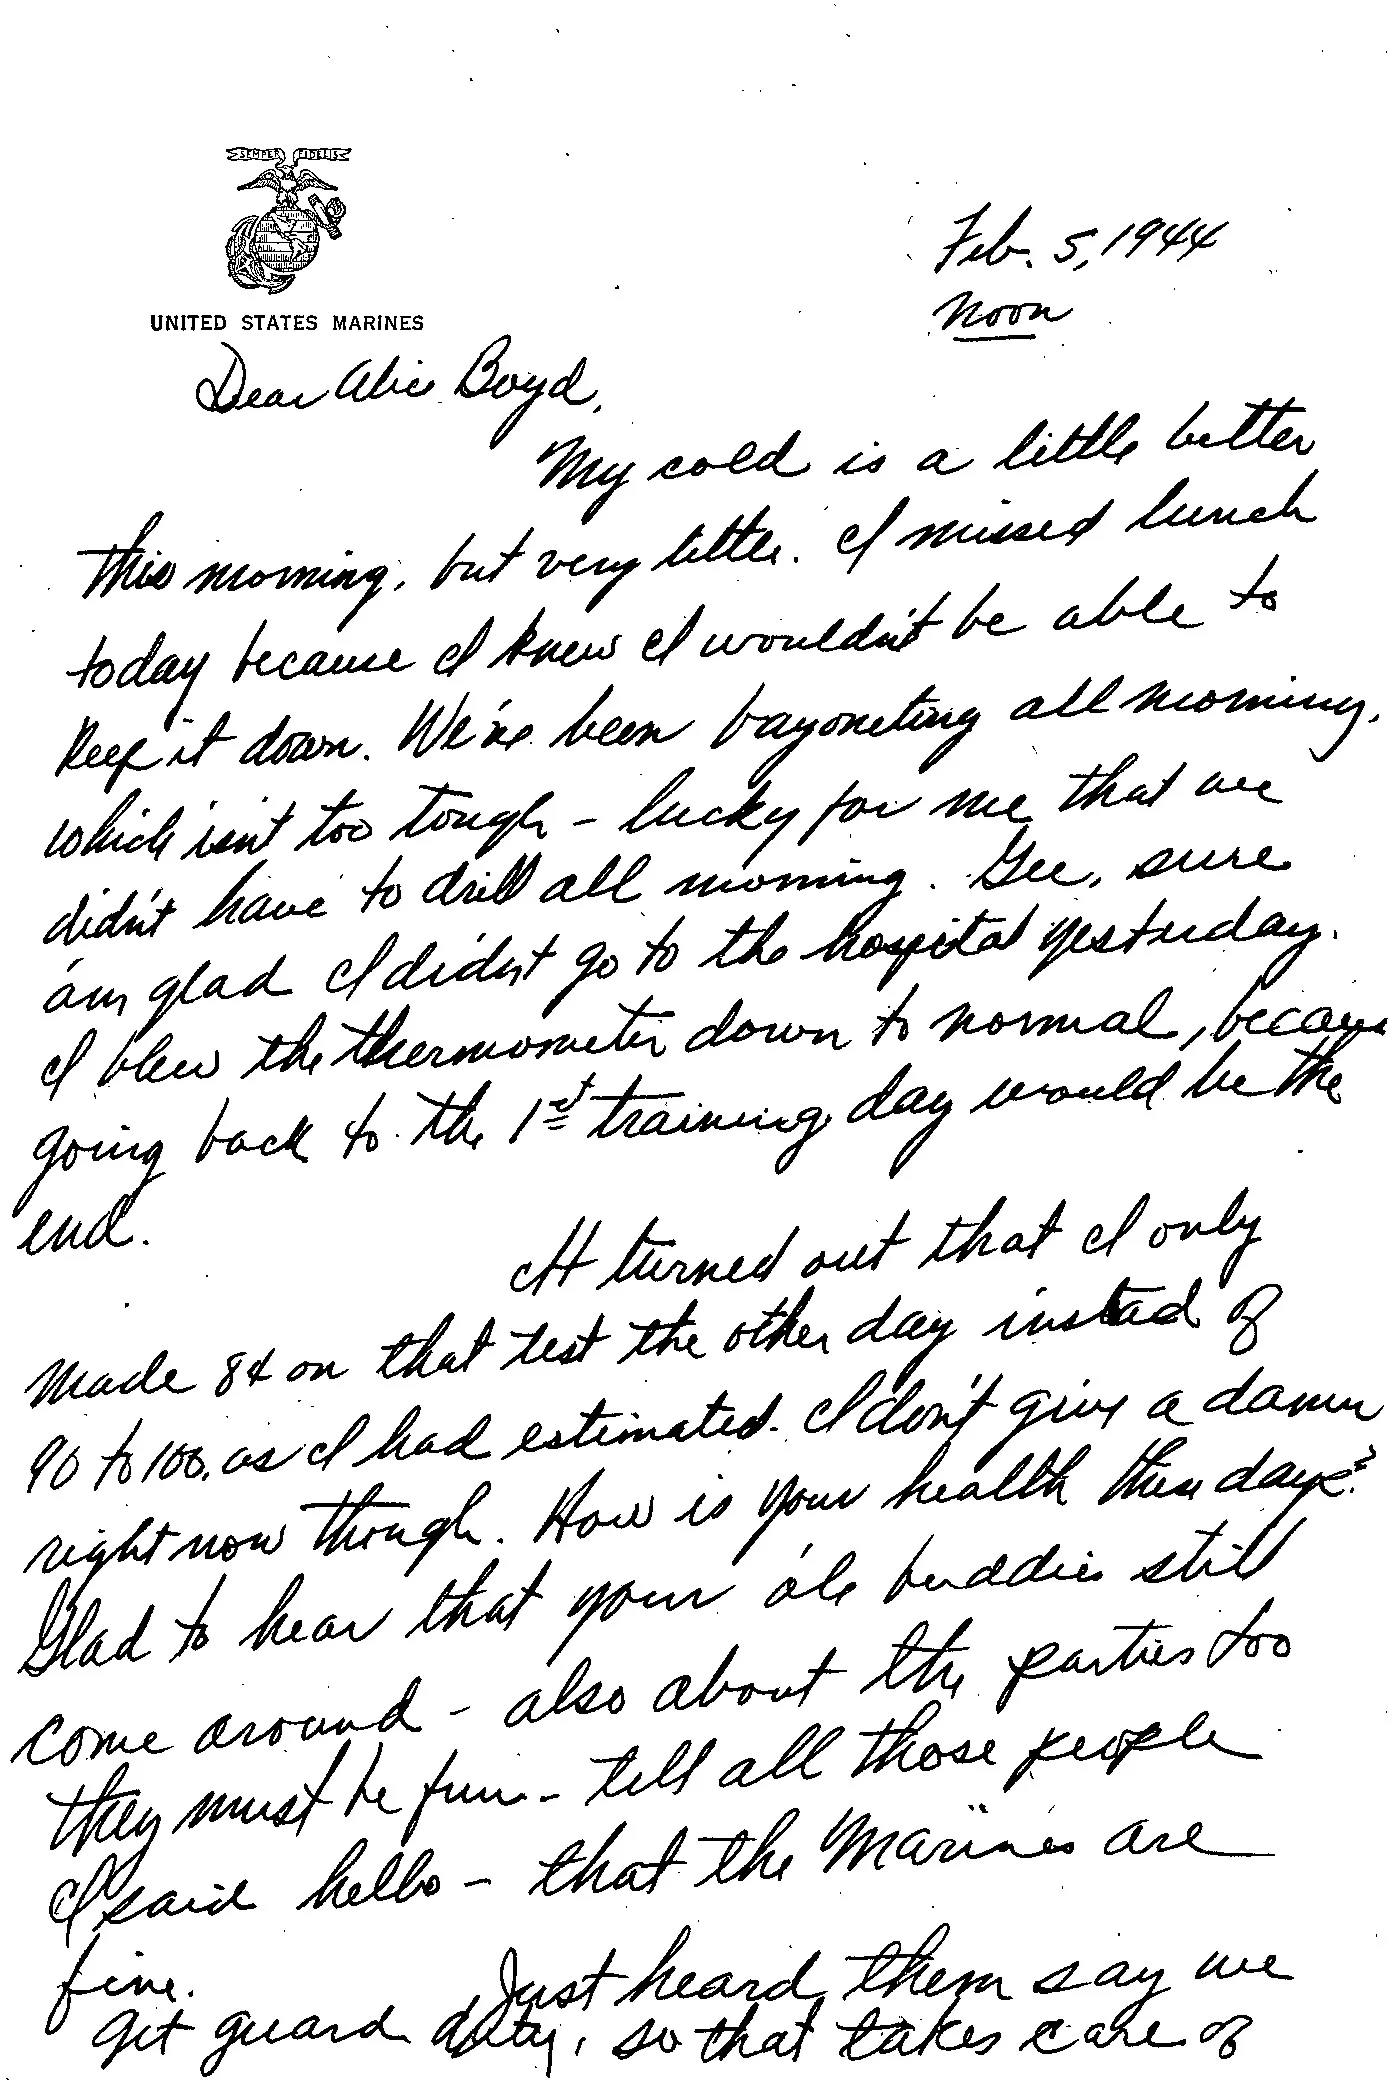 SEMPER FIDELIS
UNITED STATES MARINES
Feb. 5, 1944
Noon
Dear Alice Boyd,
My cold is a little better
this morning, but very little. I missed lunch
today because I knew I wouldn't be able to
keep it down. We've been bayoneting all morning,
which isn't too tough - lucky for me that we
didn't have to drill all morning. Gee, sure
am glad I didn't go to the hospital yesterday.
I blew the thermometer down to normal, because
going back to the 1st training day would be the
end.
It turned out that I only
made 84 on that test the other day instead of
90 to 100, as I had estimated. I don't give a damn
right now though. How is your health these days?
Glad to hear that your ole buddies still
come around - also about the parties too
they must be fun - tell all those people
I said hello - that the "Marines are
fine.
Just heard them say we
get guard duty, so that takes care of